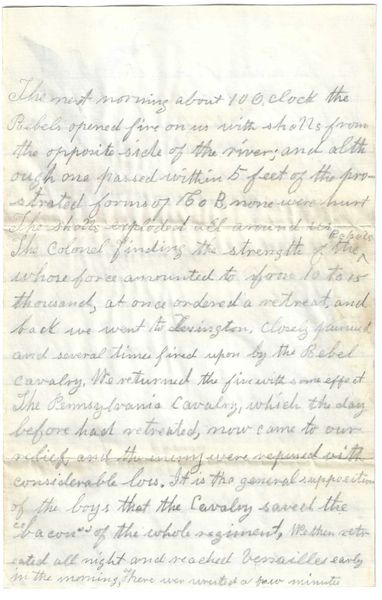 The next morning about 10 O,clock the
Rebels opened fire on us with shells from
the opposite side of the river; and alth
ough one passed within 5 feet of the pro-
strated forms of Co B, none were hurt
The shells exploded all around us
The Colonel finding the strength of the Rebels
whose force amounted to from 10 to 15
thousand, at once ordered a retreat, and
back we went to Lexington, closely pursued
and several times fired upon by the Rebel
cavalry, We returned the fire with some effect
The Pennsylvania Cavalry, which the day
before had retreated, now came to our
relief, and the enemy were repulsed with
considerable loss. It is the general supposition
of the boys that the Cavalry saved the
"bacon" of the whole regiment, We then retr-
eated all night and reached Versailles early
in the morning, There we waited a few minutes